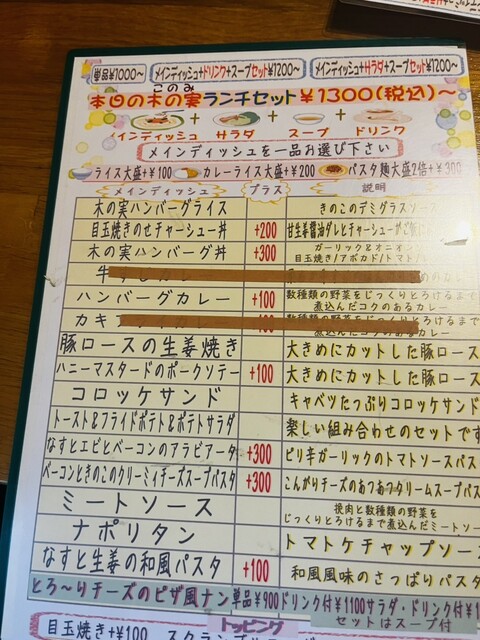 単品¥1000〜
メインディッシュ+ドリンク+スープセット¥1200〜
メインディッシュ+サラダ+スープセット¥1200〜
このみ
本日の木の実ランチセット¥1300(税込)〜
メインディッシュ + サラダ + スープ + ドリンク
メインディッシュを一品お選び下さい
ライス大盛+¥100 カレーライス大盛+¥200 パスタ麺大盛2倍+¥300
メインディッシュ プラス 説明
木の実ハンバーグライス きのこのデミグラスソース
目玉焼きのせチャーシュー丼 +200 甘生姜醤油ダレとチャーシューがご飯に
木の実ハンバーグ丼 +300 ガーリック&オニオン
目玉焼き/アボカド/トマト/
牛 カレー のカレー
ハンバーグカレー +100 数種類の野菜をじっくりとろけるまで
煮込んだコクのあるカレー
カキ カレー +100 数種類の野菜をじっくりとろけるまで
煮込んだコクのあるカレー
豚ロースの生姜焼き 大きめにカットした豚ロース
ハニーマスタードのポークソテー +100 大きめにカットした豚ロース
コロッケサンド キャベツたっぷりコロッケサンド
トースト&フライドポテト&ポテトサラダ 楽しい組み合わせのセットです
なすとエビとベーコンのアラビアータ +300 ピリ辛ガーリックのトマトソースパス
ベーコンときのこのクリーミィチーズスープパスタ +300 こんがりチーズのあつあつクリームスープパス
ミートソース 挽肉と数種類の野菜を
じっくりとろけるまで煮込んだミートソー
ナポリタン トマトケチャップソー
なすと生姜の和風パスタ +100 和風風味のさっぱりパスタ
とろ〜りチーズのピザ風ナン 単品¥900 ドリンク付¥1100 サラダ・ドリンク付¥1
セットはスープ付
トッピング
目玉焼き+¥100